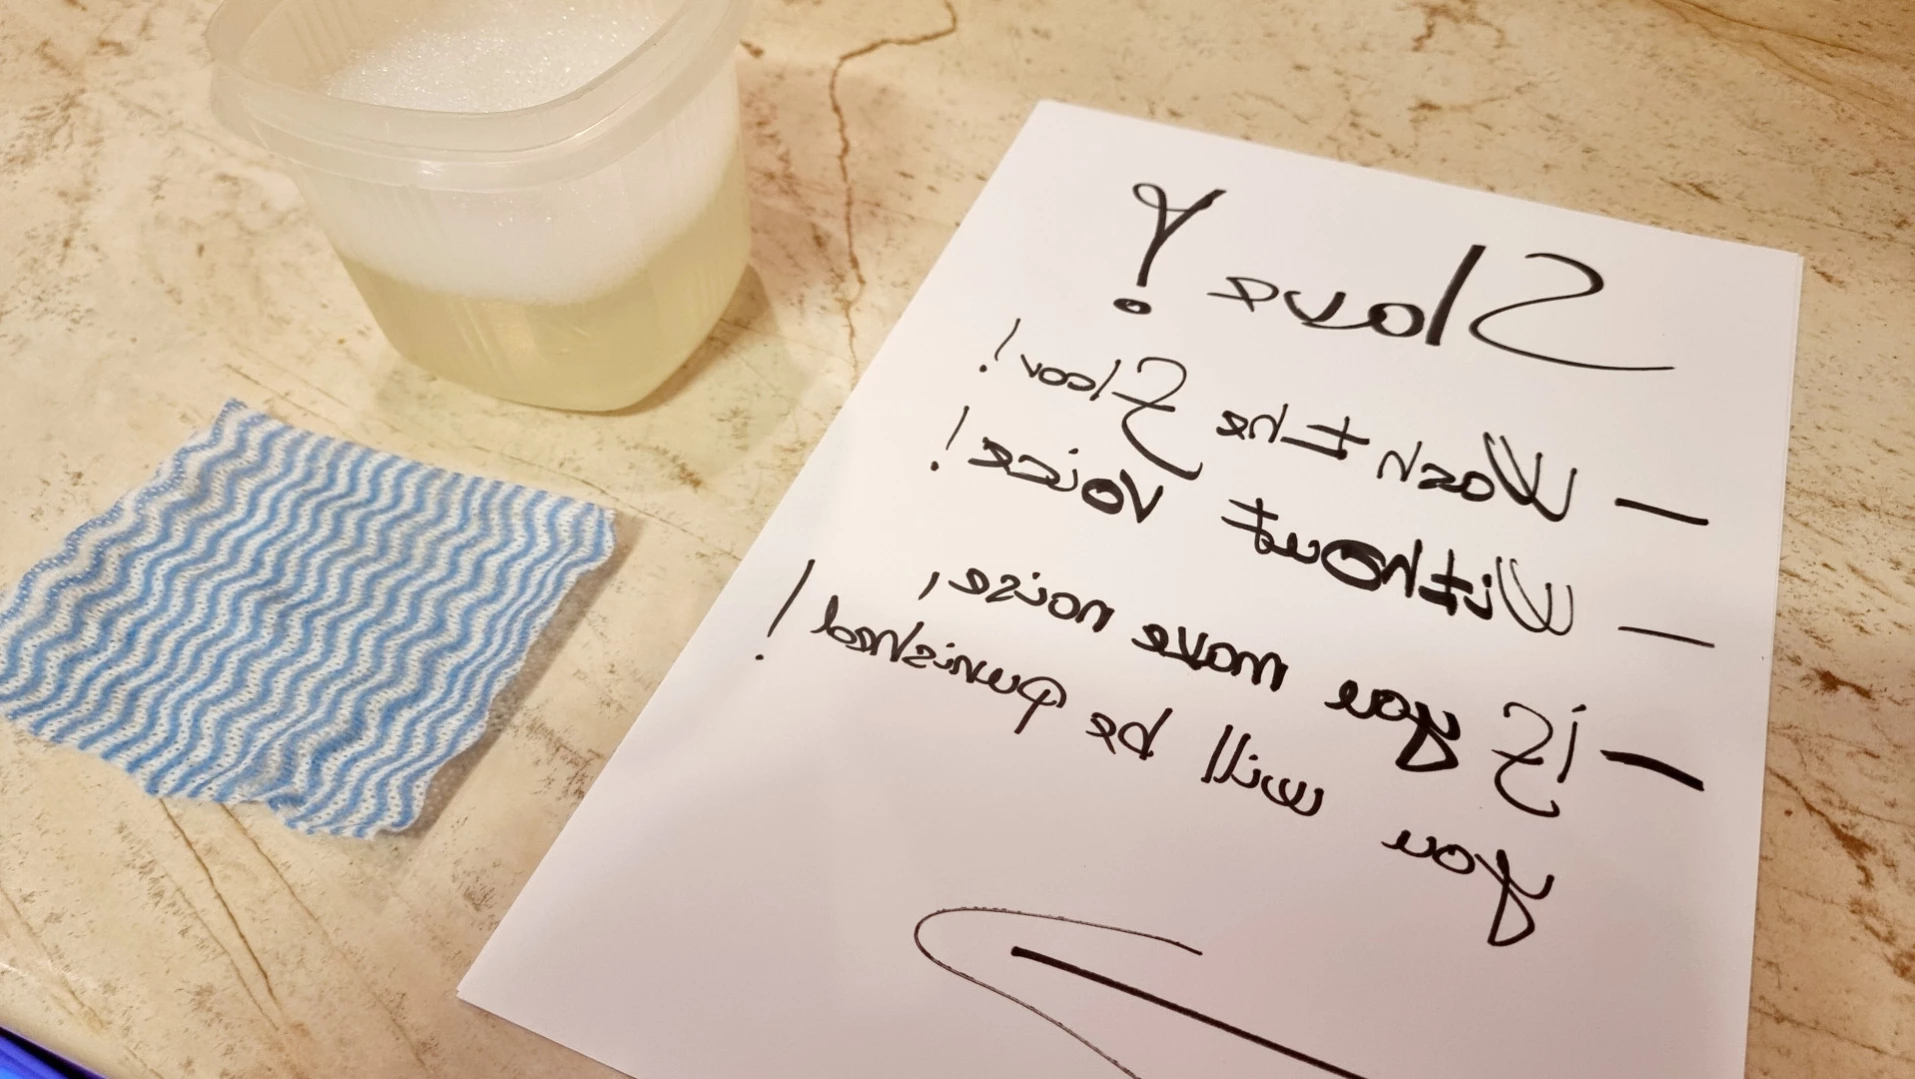 Slave!
— Wash the Floor!
— Without voice!
— if you move noise,
you will be punished!